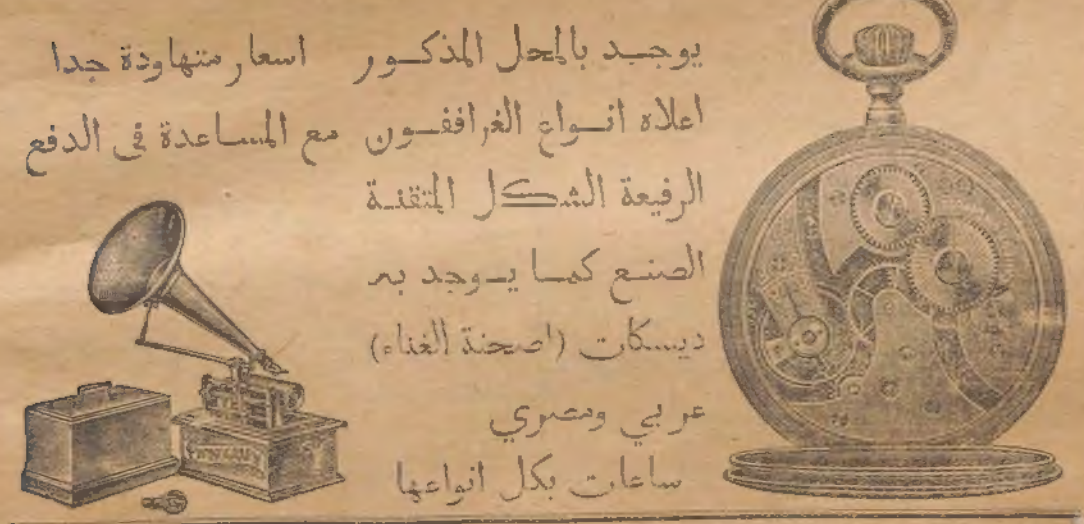 يوجد بالمحل المذكور
اعلاه انواع الغرافون
الرفيعة الشكل المتقنة
الصنع كما يوجد به
ديسكات (اصحنة الغناء)
عربي ومصري
ساعات بكل انواعها
اسعار متهاودة جدا
مع المساعدة في الدفع